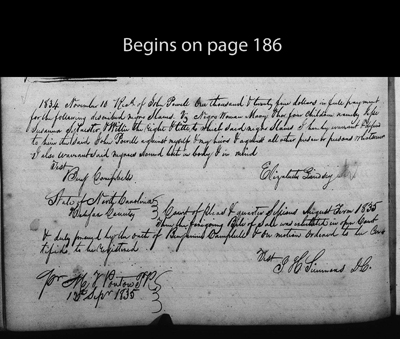 Begins on page 186
1834 November 10 Recd of John Powell One thousand & twenty four dollars in full payment
for the following described negro Slaves. Vz Negro Woman Mary & her four children namely
Susanna & Willie the Right & title to which said negro Slaves I hereby warrant &
to him the said John Powell against myself & my heirs & against all other person or persons whatever
& also warrant said negroes sound both in body & in mind
Test
Benj Campbell
Elizabeth
State of North Carolina
Halifax County
Court of Pleas & quarter Sessions August Term 1835
the foregoing Bill of Sale was exhibited in open Court
& duly proved by the oath of Benjamin Campbell & on motion ordered to be
to be Registered
Test
J H Simmons D.C.
Pr M. P.R.
12th Sepr 1835